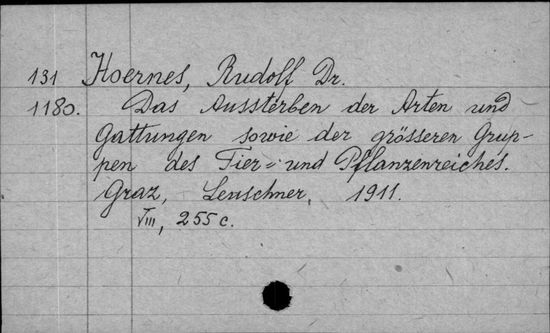 131 Hoernes, Rudolf Dr.
1180. Das Aussterben der Arten und
Gattungen sowie der grösseren Grup-
pen des Tier= und Pflanzenreiches.
Graz, Leuschner, 1911.
VIII, 255 c.